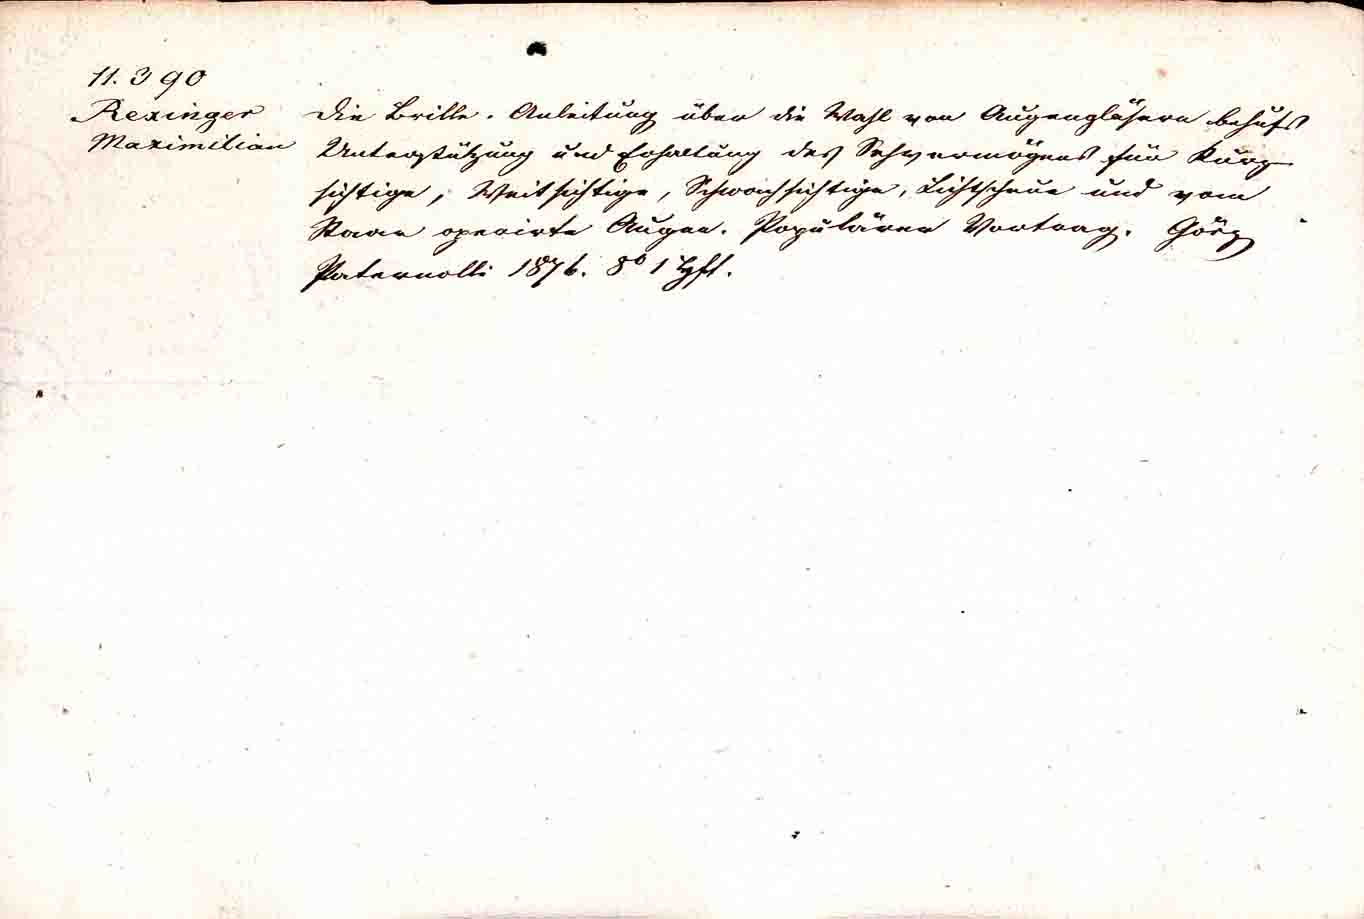 11.390
Rexinger
Maximilian
Die Brille. Anleitung über die Wahl von Augengläsern behufs
Unterstützung und Erhaltung des Sehvermögens für Kurz-
sichtige, Weitsichtige, Schwachsichtige, Lichtscheue und vom
Staar operirte Augen. Populärer Vortrag. Görz
Paternolli 1876. 8° 1 Hft.